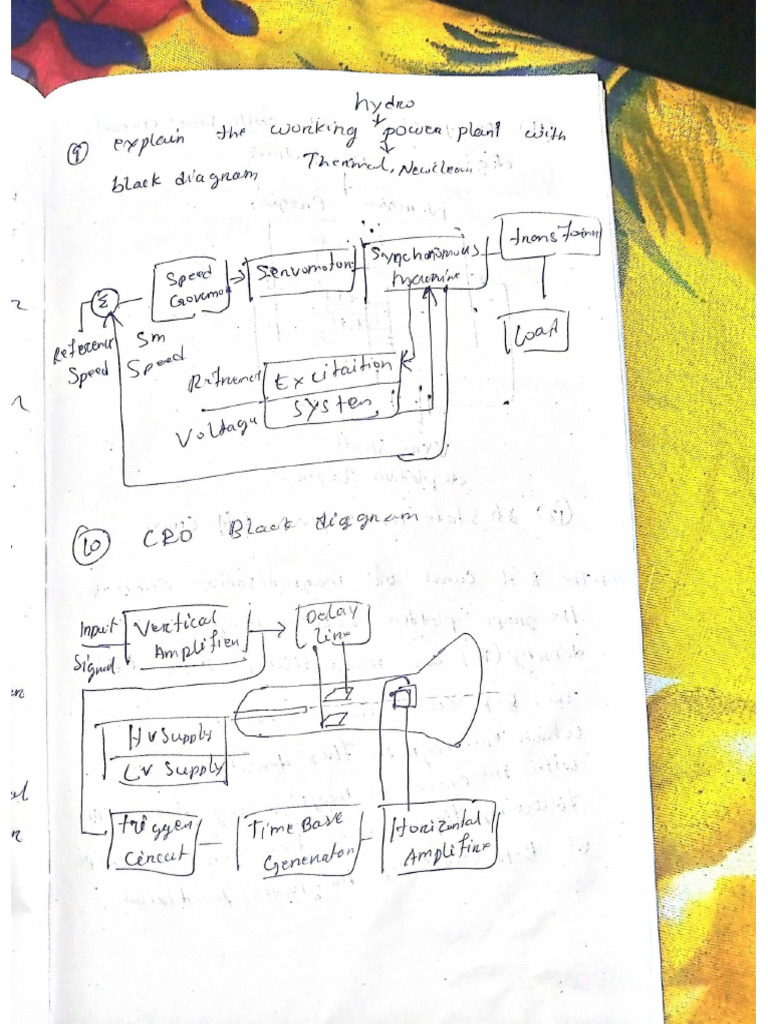 hydro
9 explain the working power plant with
black diagram Thermal, Newclean
transformer
Speed Governo
Servomotors
Synchoronous Machine
Σ
Reference Speed
Sm Speed
Load
Refrence Voltage
Excitaition System
10 CRO Black diagram
Input Signal
Vertical Amplifien
Delay line
HV Supply
LV Supply
Triggen Circuit
Time Base Genenaton
Horizontal Amplifine